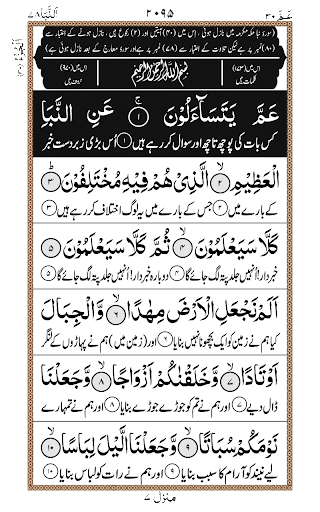 عَمّ ٣٠ ٢٠٩٥ اَلنَّبَا ٧٨
اَلْجُزْءُ (٣٠)
سورۂ نبا مکہ مکرمہ میں نازل ہوئی، اس میں (٤٠) آیتیں اور (٢) رکوع ہیں، نازل ہونے کے اعتبار سے
(٨٠) نمبر پر ہے لیکن تلاوت کے اعتبار سے (٧٨) نمبر پر ہے اور سورۂ معارج کے بعد نازل ہوئی ہے
بِسْمِ اللّٰهِ الرَّحْمٰنِ الرَّحِيْمِ
عَمَّ يَتَسَآءَلُوْنَ ۚ ١ عَنِ النَّبَاِ
کس بات کی پوچھ تاچھ اور سوال کر رہے ہیں ١ اُس بڑی زبردست خبر
الْعَظِيْمِ ۙ ٢ الَّذِىْ هُمْ فِيْهِ مُخْتَلِفُوْنَ ؕ ٣
کے بارے میں ٢ جس کے بارے میں یہ لوگ اختلاف کر رہے ہیں ٣
كَلَّا سَيَعْلَمُوْنَ ۙ ٤ ثُمَّ كَلَّا سَيَعْلَمُوْنَ ٥
خبردار! اُنہیں جلد پتہ لگ جائے گا ٤ دوبارہ خبردار! اُنہیں جلد پتہ لگ جائے گا ٥
اَلَمْ نَجْعَلِ الْاَرْضَ مِهٰدًا ۙ ٦ وَّالْجِبَالَ
کیا ہم نے زمین کو ایک بچھونا نہیں بنایا ٦ اور (زمین میں) ہم نے پہاڑوں کے لنگر
اَوْتَادًا ۙ ٧ وَّخَلَقْنٰكُمْ اَزْوَاجًا ۙ ٨ وَّجَعَلْنَا
ڈال دیے ٧ اور ہم نے تم کو جوڑے جوڑے بنایا ٨ اور ہم نے تمہارے
نَوْمَكُمْ سُبَاتًا ۙ ٩ وَّجَعَلْنَا الَّيْلَ لِبَاسًا ۙ ١٠
لیے نیند کو آرام کا سبب بنایا ٩ اور ہم نے رات کو لباس بنایا ١٠
منزل ٧